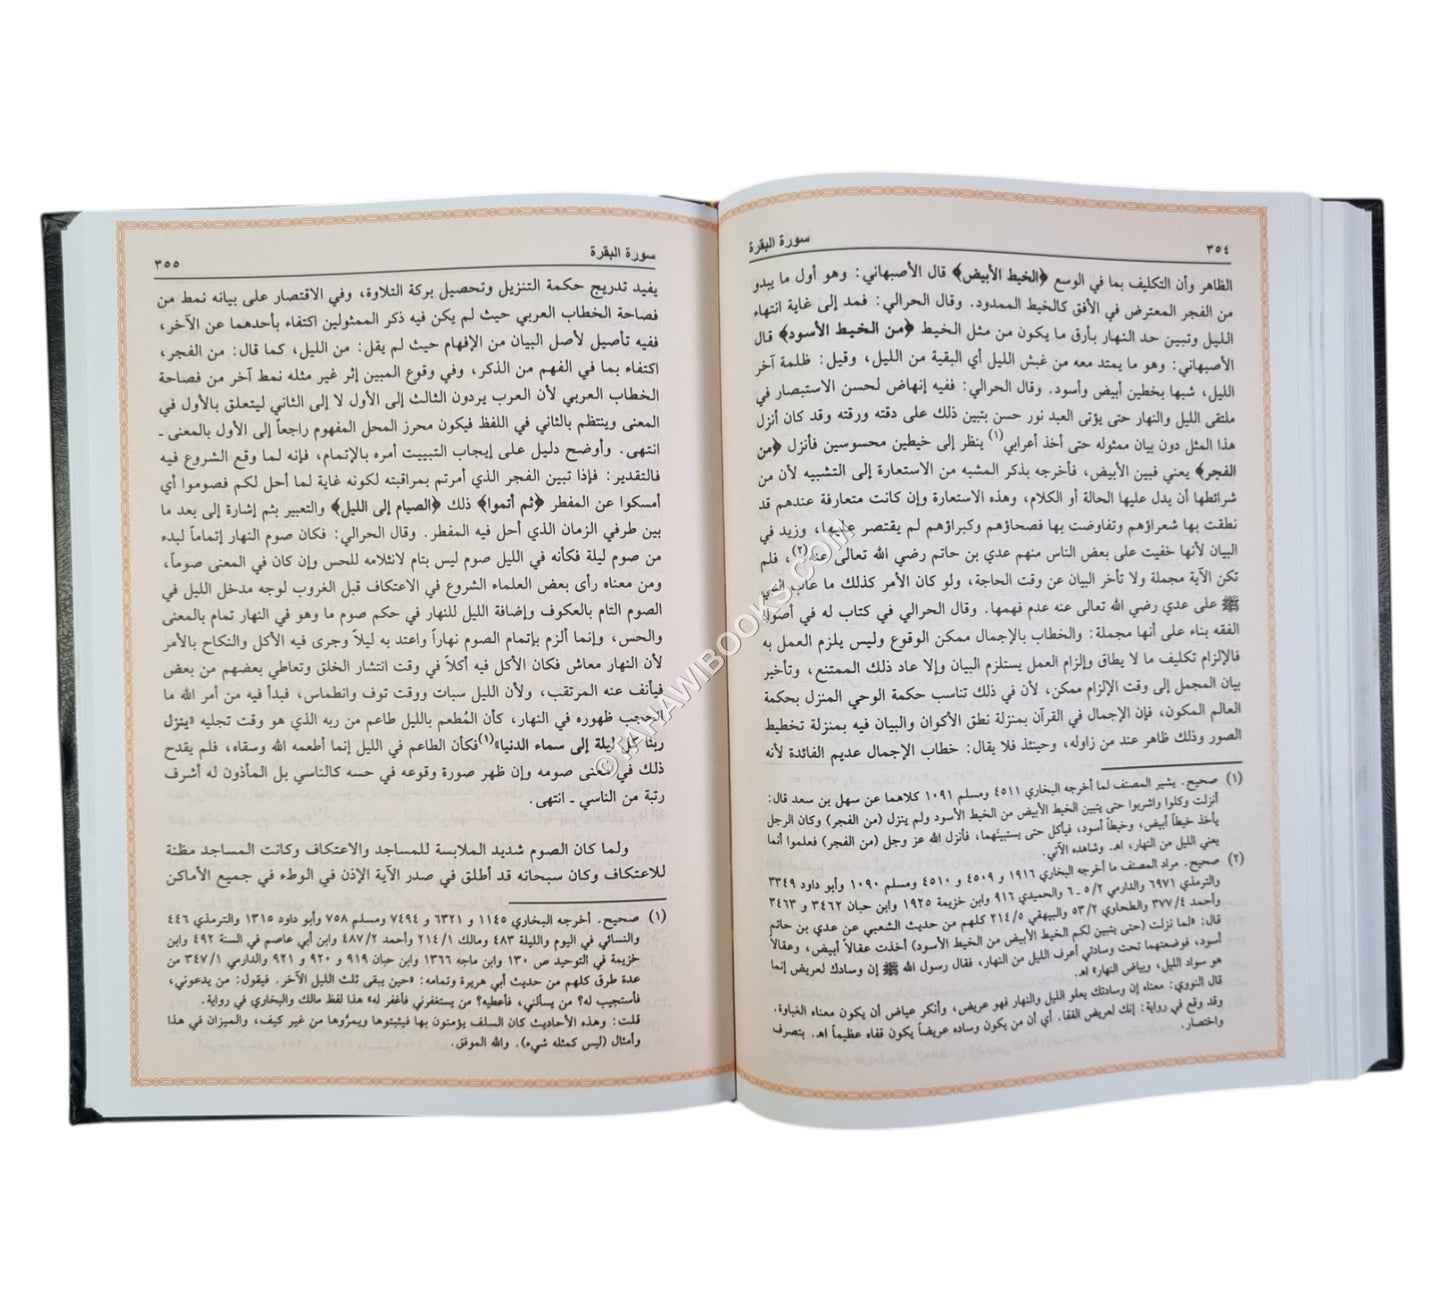 ٣٥٤
سورة البقرة
الظاهر وأن التكليف بما في الوسع ﴿الخيط الأبيض﴾ قال الأصبهاني: وهو أول ما يبدو
من الفجر المعترض في الأفق كالخيط الممدود. وقال الحرالي: فمد إلى غاية انتهاء
الليل وتبين حد النهار بأرق ما يكون من مثل الخيط ﴿من الخيط الأسود﴾ قال
الأصبهاني: وهو ما يمتد معه من غبش الليل أي البقية من الليل، وقيل: ظلمة آخر
الليل، شبها بخطين أبيض وأسود. وقال الحرالي: ففيه إنهاض لحسن الاستبصار في
ملتقى الليل والنهار حتى يؤتى العبد نور حسن بتبين ذلك على دقته ورقته وقد كان أنزل
هذا المثل دون بيان ممثوله حتى أخذ أعرابي(١) ينظر إلى خيطين محسوسين فأنزل ﴿من
الفجر﴾ يعني فبين الأبيض، فأخرجه بذكر المشبه من الاستعارة إلى التشبيه لأن من
شرائطها أن يدل عليها الحالة أو الكلام، وهذه الاستعارة وإن كانت متعارفة عندهم قد
نطقت بها شعراؤهم وتفاوضت بها فصحاؤهم وكبراؤهم لم يقتصر عليها، وزيد في
البيان لأنها خفيت على بعض الناس منهم عدي بن حاتم رضي الله تعالى عنه(٢)، فلم
تكن الآية مجملة ولا تأخر البيان عن وقت الحاجة، ولو كان الأمر كذلك ما عاب النبي
ﷺ على عدي رضي الله تعالى عنه عدم فهمها. وقال الحرالي في كتاب له في أصول
الفقه بناء على أنها مجملة: والخطاب بالإجمال ممكن الوقوع وليس يلزم العمل به
فالإلزام تكليف ما لا يطاق وإلزام العمل يستلزم البيان وإلا عاد ذلك الممتنع، وتأخير
بيان المجمل إلى وقت الإلزام ممكن، لأن في ذلك تناسب حكمة الوحي المنزل بحكمة
العالم المكون، فإن الإجمال في القرآن بمنزلة نطق الأكوان والبيان فيه بمنزلة تخطيط
الصور وذلك ظاهر عند من زاوله، وحينئذ فلا يقال: خطاب الإجمال عديم الفائدة لأنه
(١) صحيح. يشير المصنف لما أخرجه البخاري ٤٥١١ ومسلم ١٠٩١ كلاهما عن سهل بن سعد قال:
أنزلت وكلوا واشربوا حتى يتبين الخيط الأبيض من الخيط الأسود ولم ينزل (من الفجر) وكان الرجل
يأخذ خيطاً أبيض، وخيطاً أسود، فيأكل حتى يستبينهما، فأنزل الله عز وجل (من الفجر) فعلموا أنما
يعني الليل من النهار، اهـ. وشاهده الآتي.
(٢) صحيح. مراد المصنف ما أخرجه البخاري ١٩١٦ و ٤٥٠٩ و ٤٥١٠ ومسلم ١٠٩٠ وأبو داود ٢٣٤٩
والترمذي ٦٩٧١ والدارمي ٥/٢ ـ ٦ والحميدي ٩١٦ وابن خزيمة ١٩٢٥ وابن حبان ٣٤٦٢ و ٣٤٦٣
وأحمد ٣٧٧/٤ والطحاوي ٥٣/٢ والبيهقي ٢١٤/٥ كلهم من حديث الشعبي عن عدي بن حاتم
قال: «لما نزلت (حتى يتبين لكم الخيط الأبيض من الخيط الأسود) أخذت عقالاً أبيض، وعقالاً
أسود، فوضعتهما تحت وسادتي أعرف الليل من النهار، فقال رسول الله ﷺ إن وسادك لعريض إنما
هو سواد الليل، وبياض النهار» اهـ.
قال النووي: معناه إن وسادتك يعلو الليل والنهار فهو عريض، وأنكر عياض أن يكون معناه الغباوة.
وقد وقع في رواية: إنك لعريض القفا. أي أن من يكون وساده عريضاً يكون قفاه عظيماً اهـ. بتصرف
واختصار.
سورة البقرة
٣٥٥
يفيد تدريج حكمة التنزيل وتحصيل بركة التلاوة، وفي الاقتصار على بيانه نمط من
فصاحة الخطاب العربي حيث لم يكن فيه ذكر الممثولين اكتفاء بأحدهما عن الآخر،
ففيه تأصيل لأصل البيان من الإفهام حيث لم يقل: من الليل، كما قال: من الفجر،
اكتفاء بما في الفهم من الذكر، وفي وقوع المبين إثر غير مثله نمط آخر من فصاحة
الخطاب العربي لأن العرب يردون الثالث إلى الأول لا إلى الثاني ليتعلق بالأول في
المعنى وينتظم بالثاني في اللفظ فيكون محرز المحل المفهوم راجعاً إلى الأول بالمعنى ـ
انتهى. وأوضح دليل على إيجاب التبييت أمره بالإتمام، فإنه لما وقع الشروع فيه
فالتقدير: فإذا تبين الفجر الذي أمرتم بمراقبته لكونه غاية لما أحل لكم فصوموا أي
أمسكوا عن المفطر ﴿ثم أتموا﴾ ذلك ﴿الصيام إلى الليل﴾ والتعبير بثم إشارة إلى بعد ما
بين طرفي الزمان الذي أحل فيه المفطر. وقال الحرالي: فكان صوم النهار إتماماً لبدء
من صوم ليلة فكأنه في الليل صوم ليس بتام لانثلامه للحس وإن كان في المعنى صوماً،
ومن معناه رأى بعض العلماء الشروع في الاعتكاف قبل الغروب لوجه مدخل الليل في
الصوم التام بالعكوف وإضافة الليل للنهار في حكم صوم ما وهو في النهار تمام بالمعنى
والحس، وإنما ألزم بإتمام الصوم نهاراً واعتد به ليلاً وجرى فيه الأكل والنكاح بالأمر
لأن النهار معاش فكان الأكل فيه أكلاً في وقت انتشار الخلق وتعاطي بعضهم من بعض
فيأنف عنه المرتقب، ولأن الليل سبات ووقت توف وانطماس، فبدأ فيه من أمر الله ما
انحجب ظهوره في النهار، كأن المُطعم بالليل طاعم من ربه الذي هو وقت تجليه «ينزل
ربنا كل ليلة إلى سماء الدنيا»(١) فكأن الطاعم في الليل إنما أطعمه الله وسقاه، فلم يقدح
ذلك في معنى صومه وإن ظهر صورة وقوعه في حسه كالناسي بل المأذون له أشرف
رتبة من الناسي ـ انتهى.
ولما كان الصوم شديد الملابسة للمساجد والاعتكاف وكانت المساجد مظنة
للاعتكاف وكان سبحانه قد أطلق في صدر الآية الإذن في الوطء في جميع الأماكن
(١) صحيح. أخرجه البخاري ١١٤٥ و ٦٣٢١ و ٧٤٩٤ ومسلم ٧٥٨ وأبو داود ١٣١٥ والترمذي ٤٤٦
والنسائي في اليوم والليلة ٤٨٣ ومالك ٢١٤/١ وأحمد ٤٨٧/٢ وابن أبي عاصم في السنة ٤٩٢ وابن
خزيمة في التوحيد ص ١٣٠ وابن ماجه ١٣٦٦ وابن حبان ٩١٩ و ٩٢٠ و ٩٢١ والدارمي ٣٤٧/١ من
عدة طرق كلهم من حديث أبي هريرة وتمامه: «حين يبقى ثلث الليل الآخر. فيقول: من يدعوني،
فأستجيب له؟ من يسألني، فأعطيه؟ من يستغفرني فأغفر له» هذا لفظ مالك والبخاري في رواية.
قلت: وهذه الأحاديث كان السلف يؤمنون بها فيثبتوها ويمرُّوها من غير كيف، والميزان في هذا
وأمثال (ليس كمثله شيء). والله الموفق.
© TAHAWIBOOKS.COM